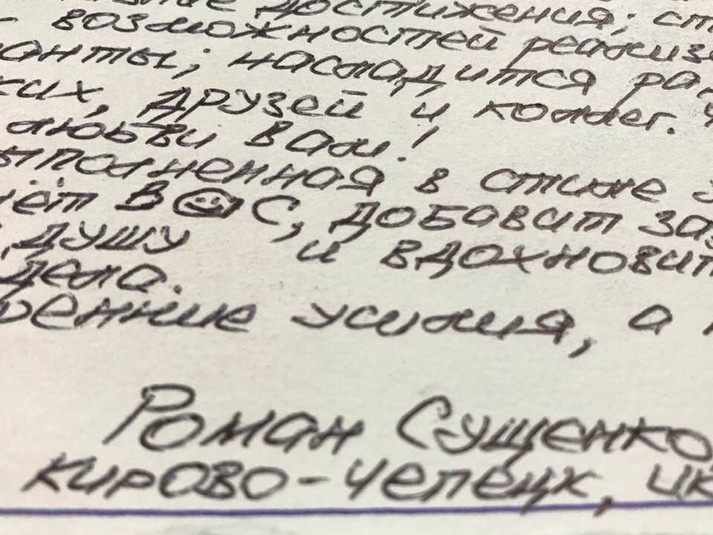 достижения; ст
возможностей реализ
анты; насладится ра
ких, друзей и коллег. Ч
любви Вам!
ыполненная в стиле
нёт В😊С, добавит за
душу и вдохновит
дела.
ренние усилия, а
Роман Сущенко
Кирово-Чепецк, ИК